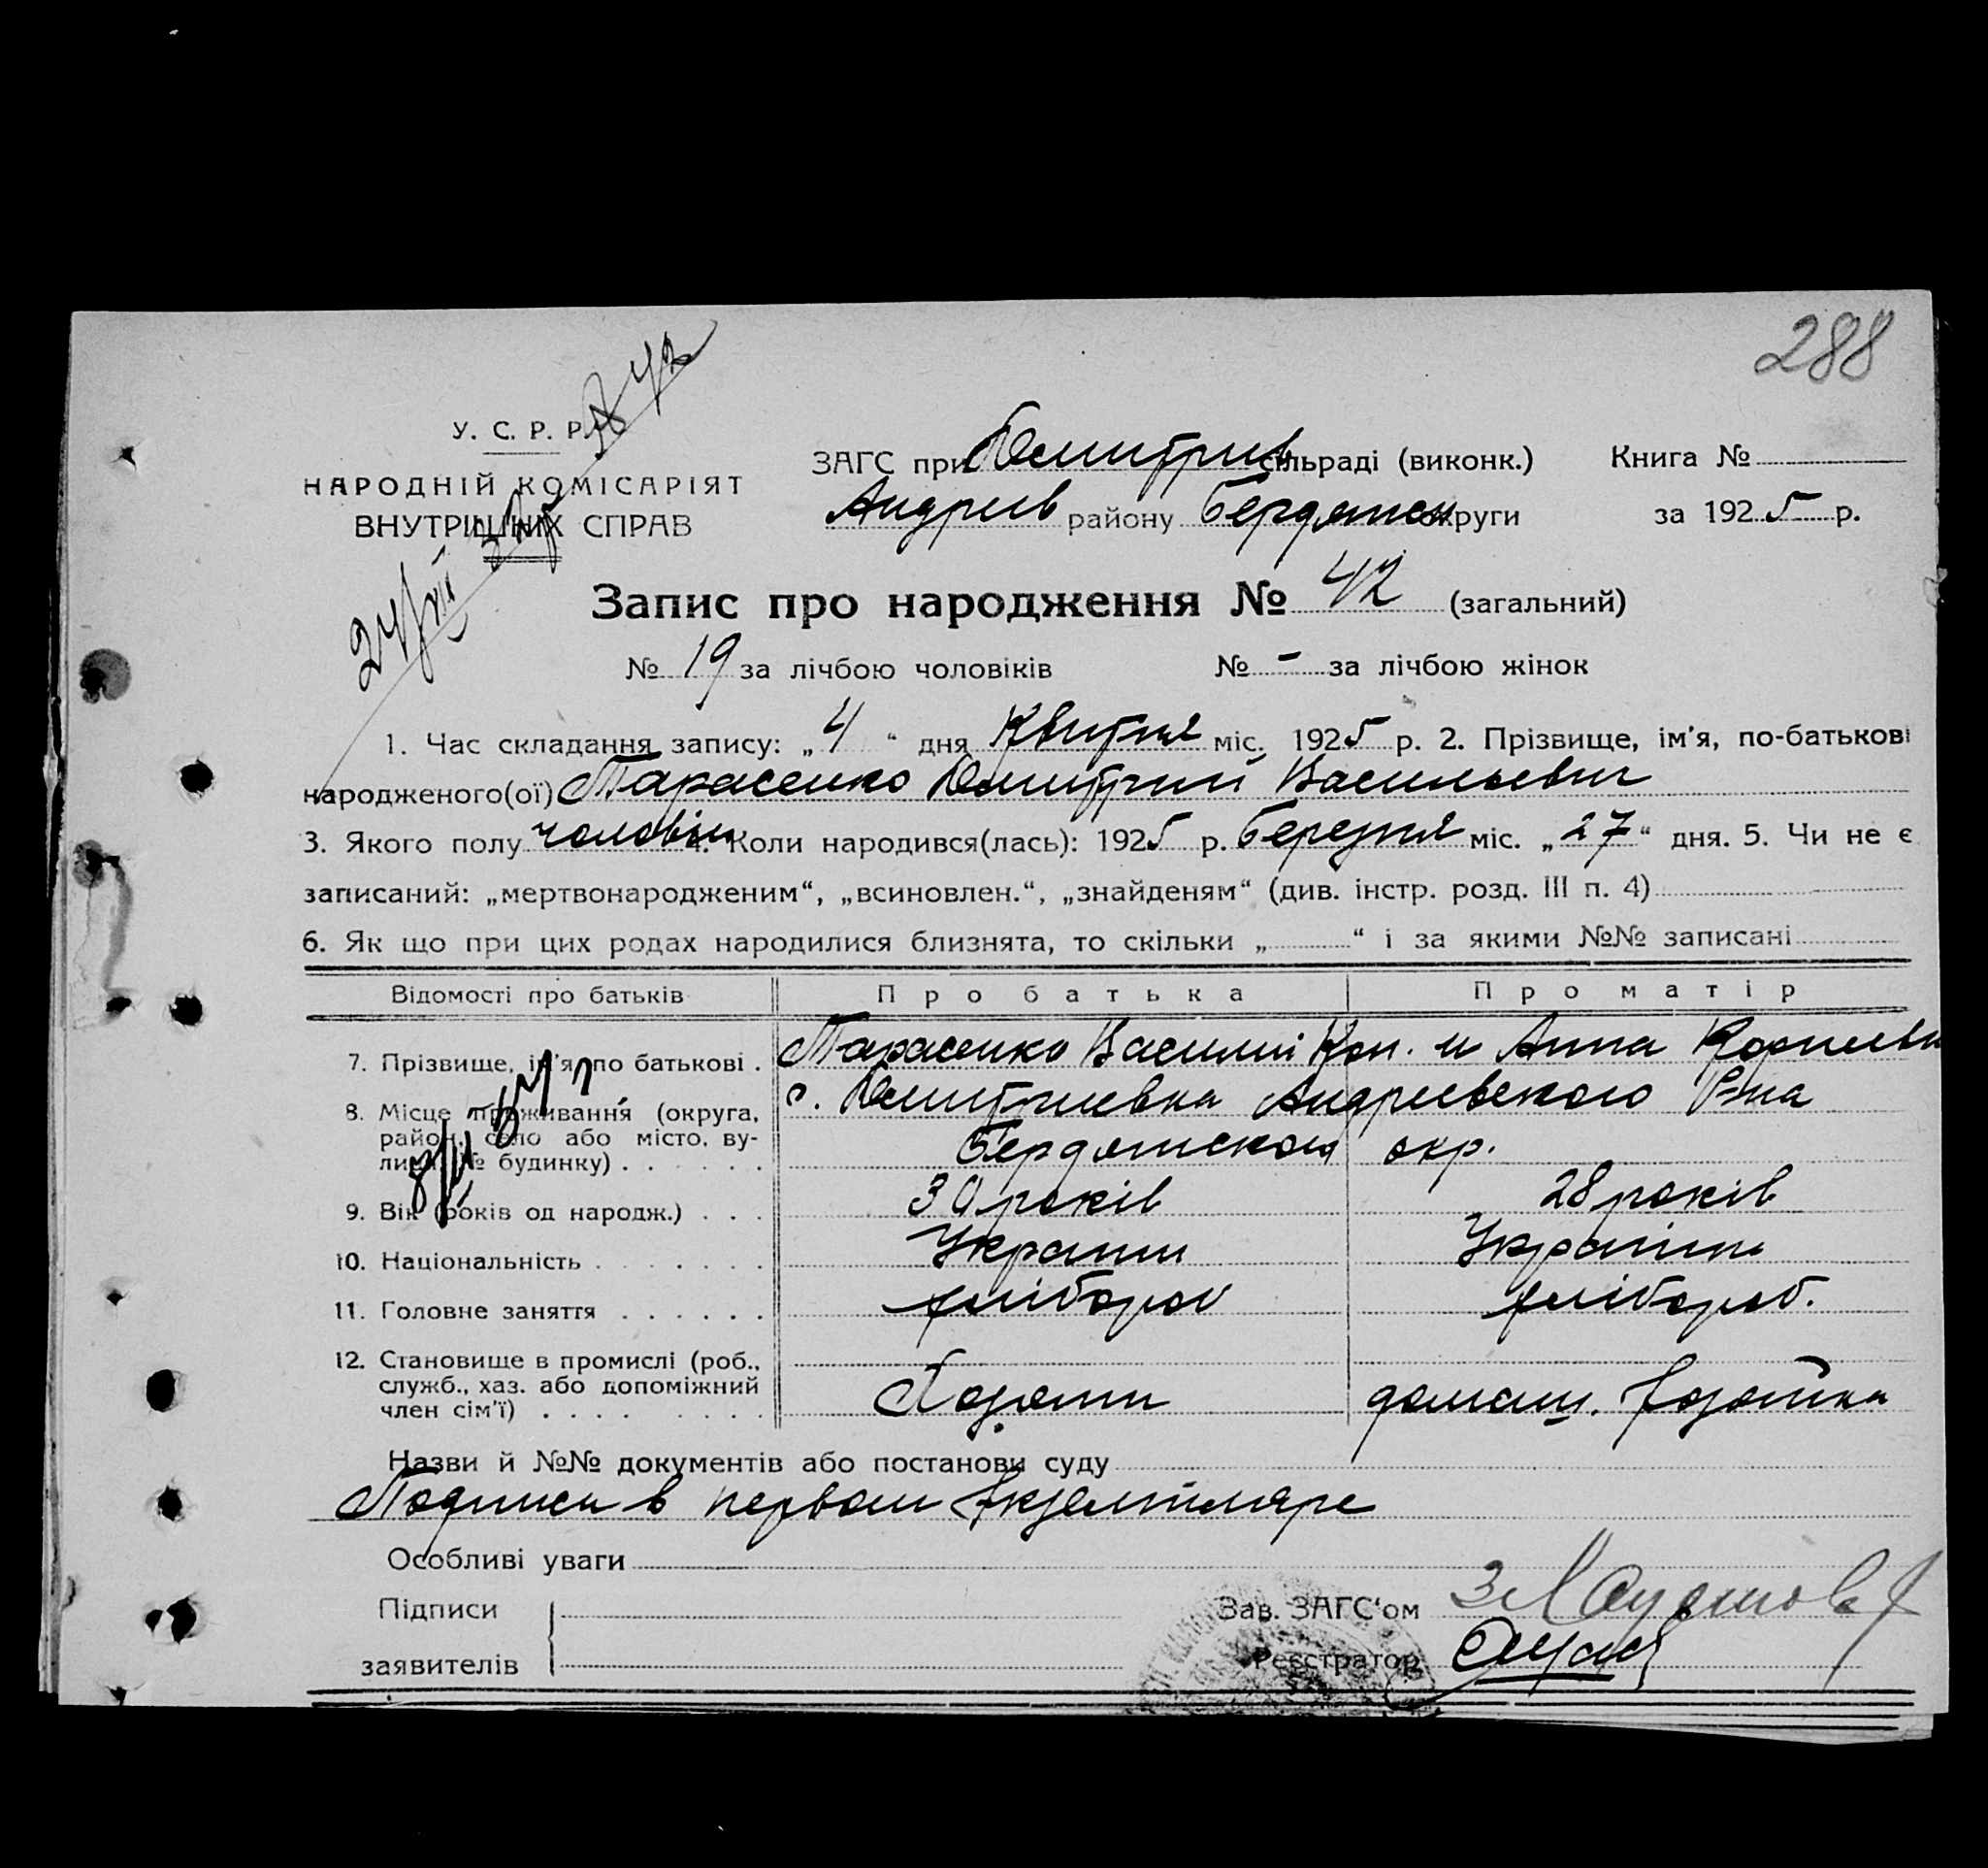 288
У. С. Р. Р.
НАРОДНІЙ КОМІСАРІЯТ
ВНУТРІШНІХ СПРАВ
№ 42
ЗАГС при Дмитрив сільраді (виконк.) Книга №
Андреев району Бердянськ округи за 1925 р.
Запис про народження № 42 (загальний)
№ 19 за лічбою чоловіків № - за лічбою жінок
1. Час складання запису: „4“ дня Квитня міс. 1925 р. 2. Прізвище, ім’я, по-батькові
народженого(ої) Тарасенко Дмитрий Васильевич
3. Якого полу чоловік 4. Коли народився(лась): 1925 р. березня міс. „27“ дня. 5. Чи не є
записаний: „мертвонародженим“, „всиновлен.“, „знайденям“ (див. інстр. розд. III п. 4)
6. Як що при цих родах народилися близнята, то скільки „ “ і за якими №№ записані
Відомості про батьків Про батька Про матір
7. Прізвище, ім’я, по батькові . Тарасенко Василий Кон. и Анна Корнеевн
8. Місце проживання (округа, с. Дмитриевка Андреевского Р-на
район, село або місто, ву-
лиця, № будинку) . . . . . . Бердянской окр.
9. Вік (років од народж.) . . . 30 років 28 років
10. Національність . . . . . . . Украин Украин
11. Головне заняття . . . . . . хлібороб хлібороб.
12. Становище в промислі (роб.,
служб., хаз. або допоміжний
член сім’ї) . . . . Хозяин домаш. хозяйка
Назви й №№ документів або постанови суду
Подписи в первом экземпляре
Особливі уваги
Підписи
Зав. ЗАГС‘ом
заявителів
Реєстратор